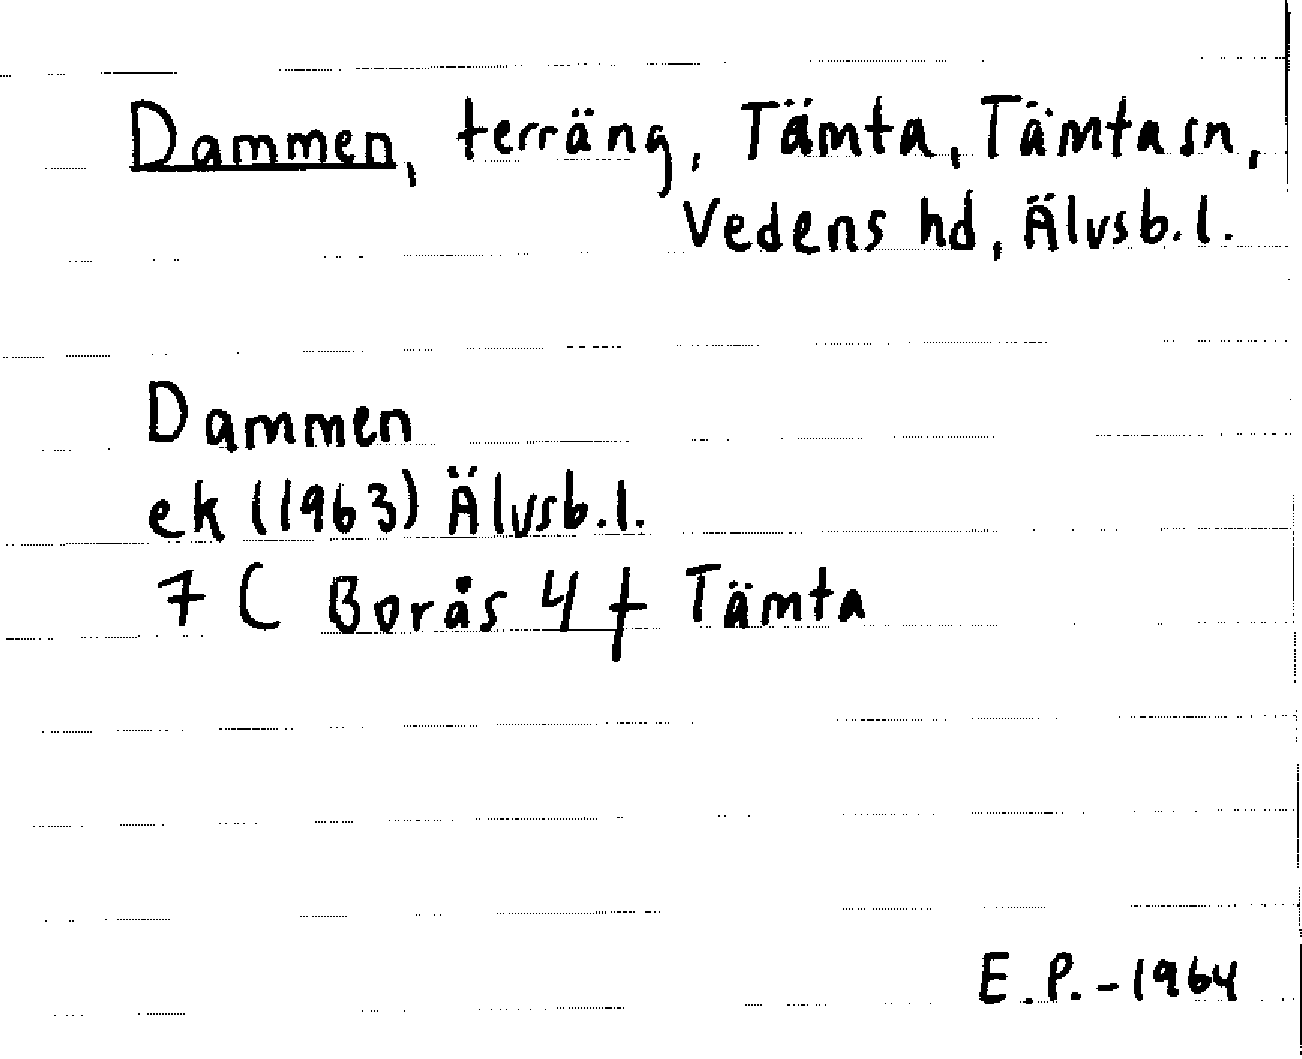 Dammen, terräng, Tämta, Tämta sn,
Vedens hd, Älvsb. l.
Dammen
ek (1963) Älvsb. l.
7 C Borås 4 f Tämta
E.P. - 1964